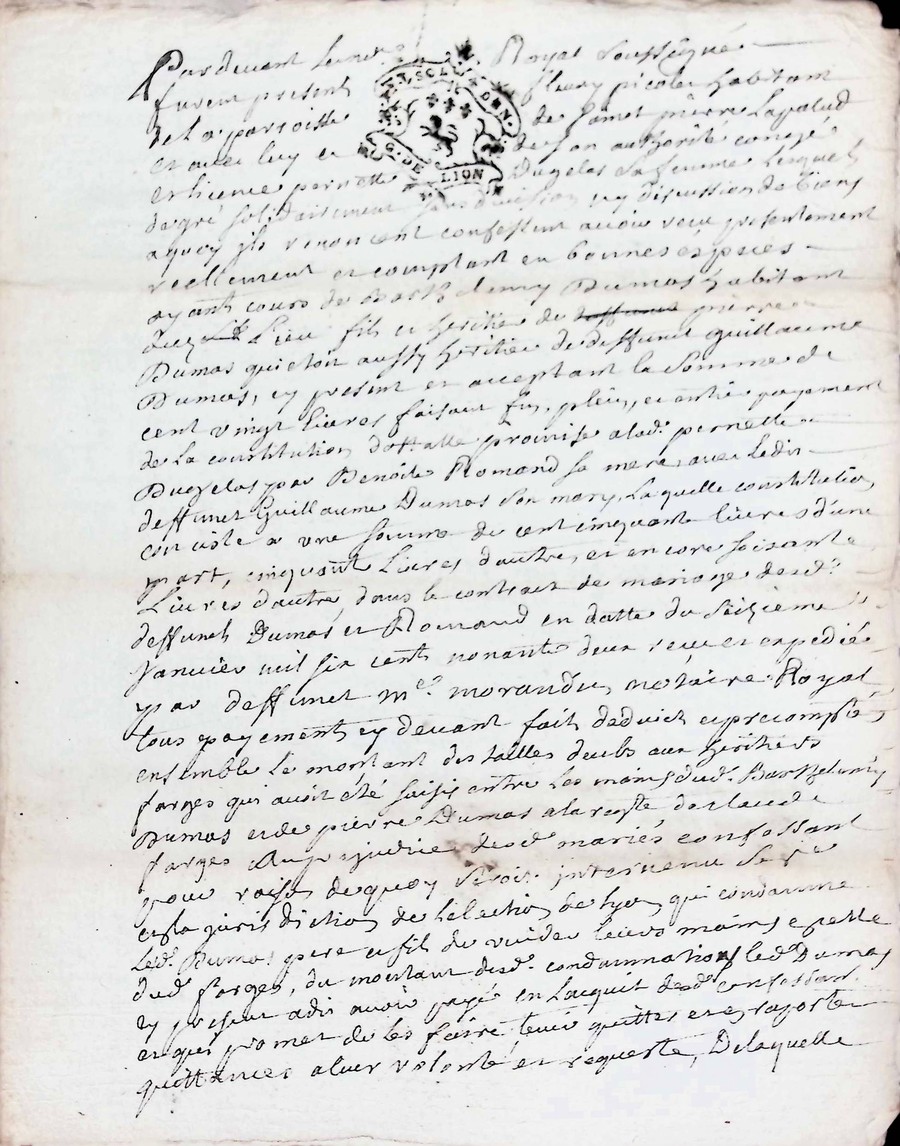 Pardevant le no.re Royal soussigné
furent presents fleury picolet habitant
de la parroisse de Saint pierre Lapalud
et avec luy et de son authorité congé
et licence pernette Dugelas sa femme lesquels
de gré solidairement sans division ny discussion de biens
a quoy ils renoncent confessent avoir receu presentement
reellement et comptant en bonnes especes
ayant cours de Barthelemy Dumas habitant
dud. Lieu fils et heritier de deffunct pierre
Dumas qui étoit aussy heritier de deffunct Guillaume
Dumas, cy present et acceptant la somme de
cent vingt livres faisant fin, plein, et entier payement
de la constitution dottalle promise a lad. pernette
Dugelas par Benoite Romand sa mere, avec ledit
deffunct Guillaume Dumas son mary, Laquelle constitution
consiste a une somme de cent cinquante livres d'une
part, cinquante Livres d'autre, et encore soixante
Livres d'autre, dans le contract de mariage desd.
deffuncts Dumas et Romand en datte du seizieme
Janvier mil six cents nonante deux receu et expedié
par deffunct Me morandu, notaire Royal
tous payements cy devant faits deduict et precomptés
ensemble le montant des tailles deubs aux heritiers
farges qui avoit été saisis entre les mains dud. Barthelemy
Dumas et de pierre Dumas a la reqte de claude
farges Au prejudice desd. mariés confessant
pour raison de quoy seroit intervenu
en la jurisdiction de l'election de Lyon, qui condamne
Led. Dumas pere et fils de vuider leurs mains
dud. farges, du montant desd. condamnations led. Dumas
cy present a dit avoir payé en Lacquit desd. confessant
et qui promet de les faire tenir quittes et en raporter
quittances a leur volonté et requeste, De laquelle
G. DE LION